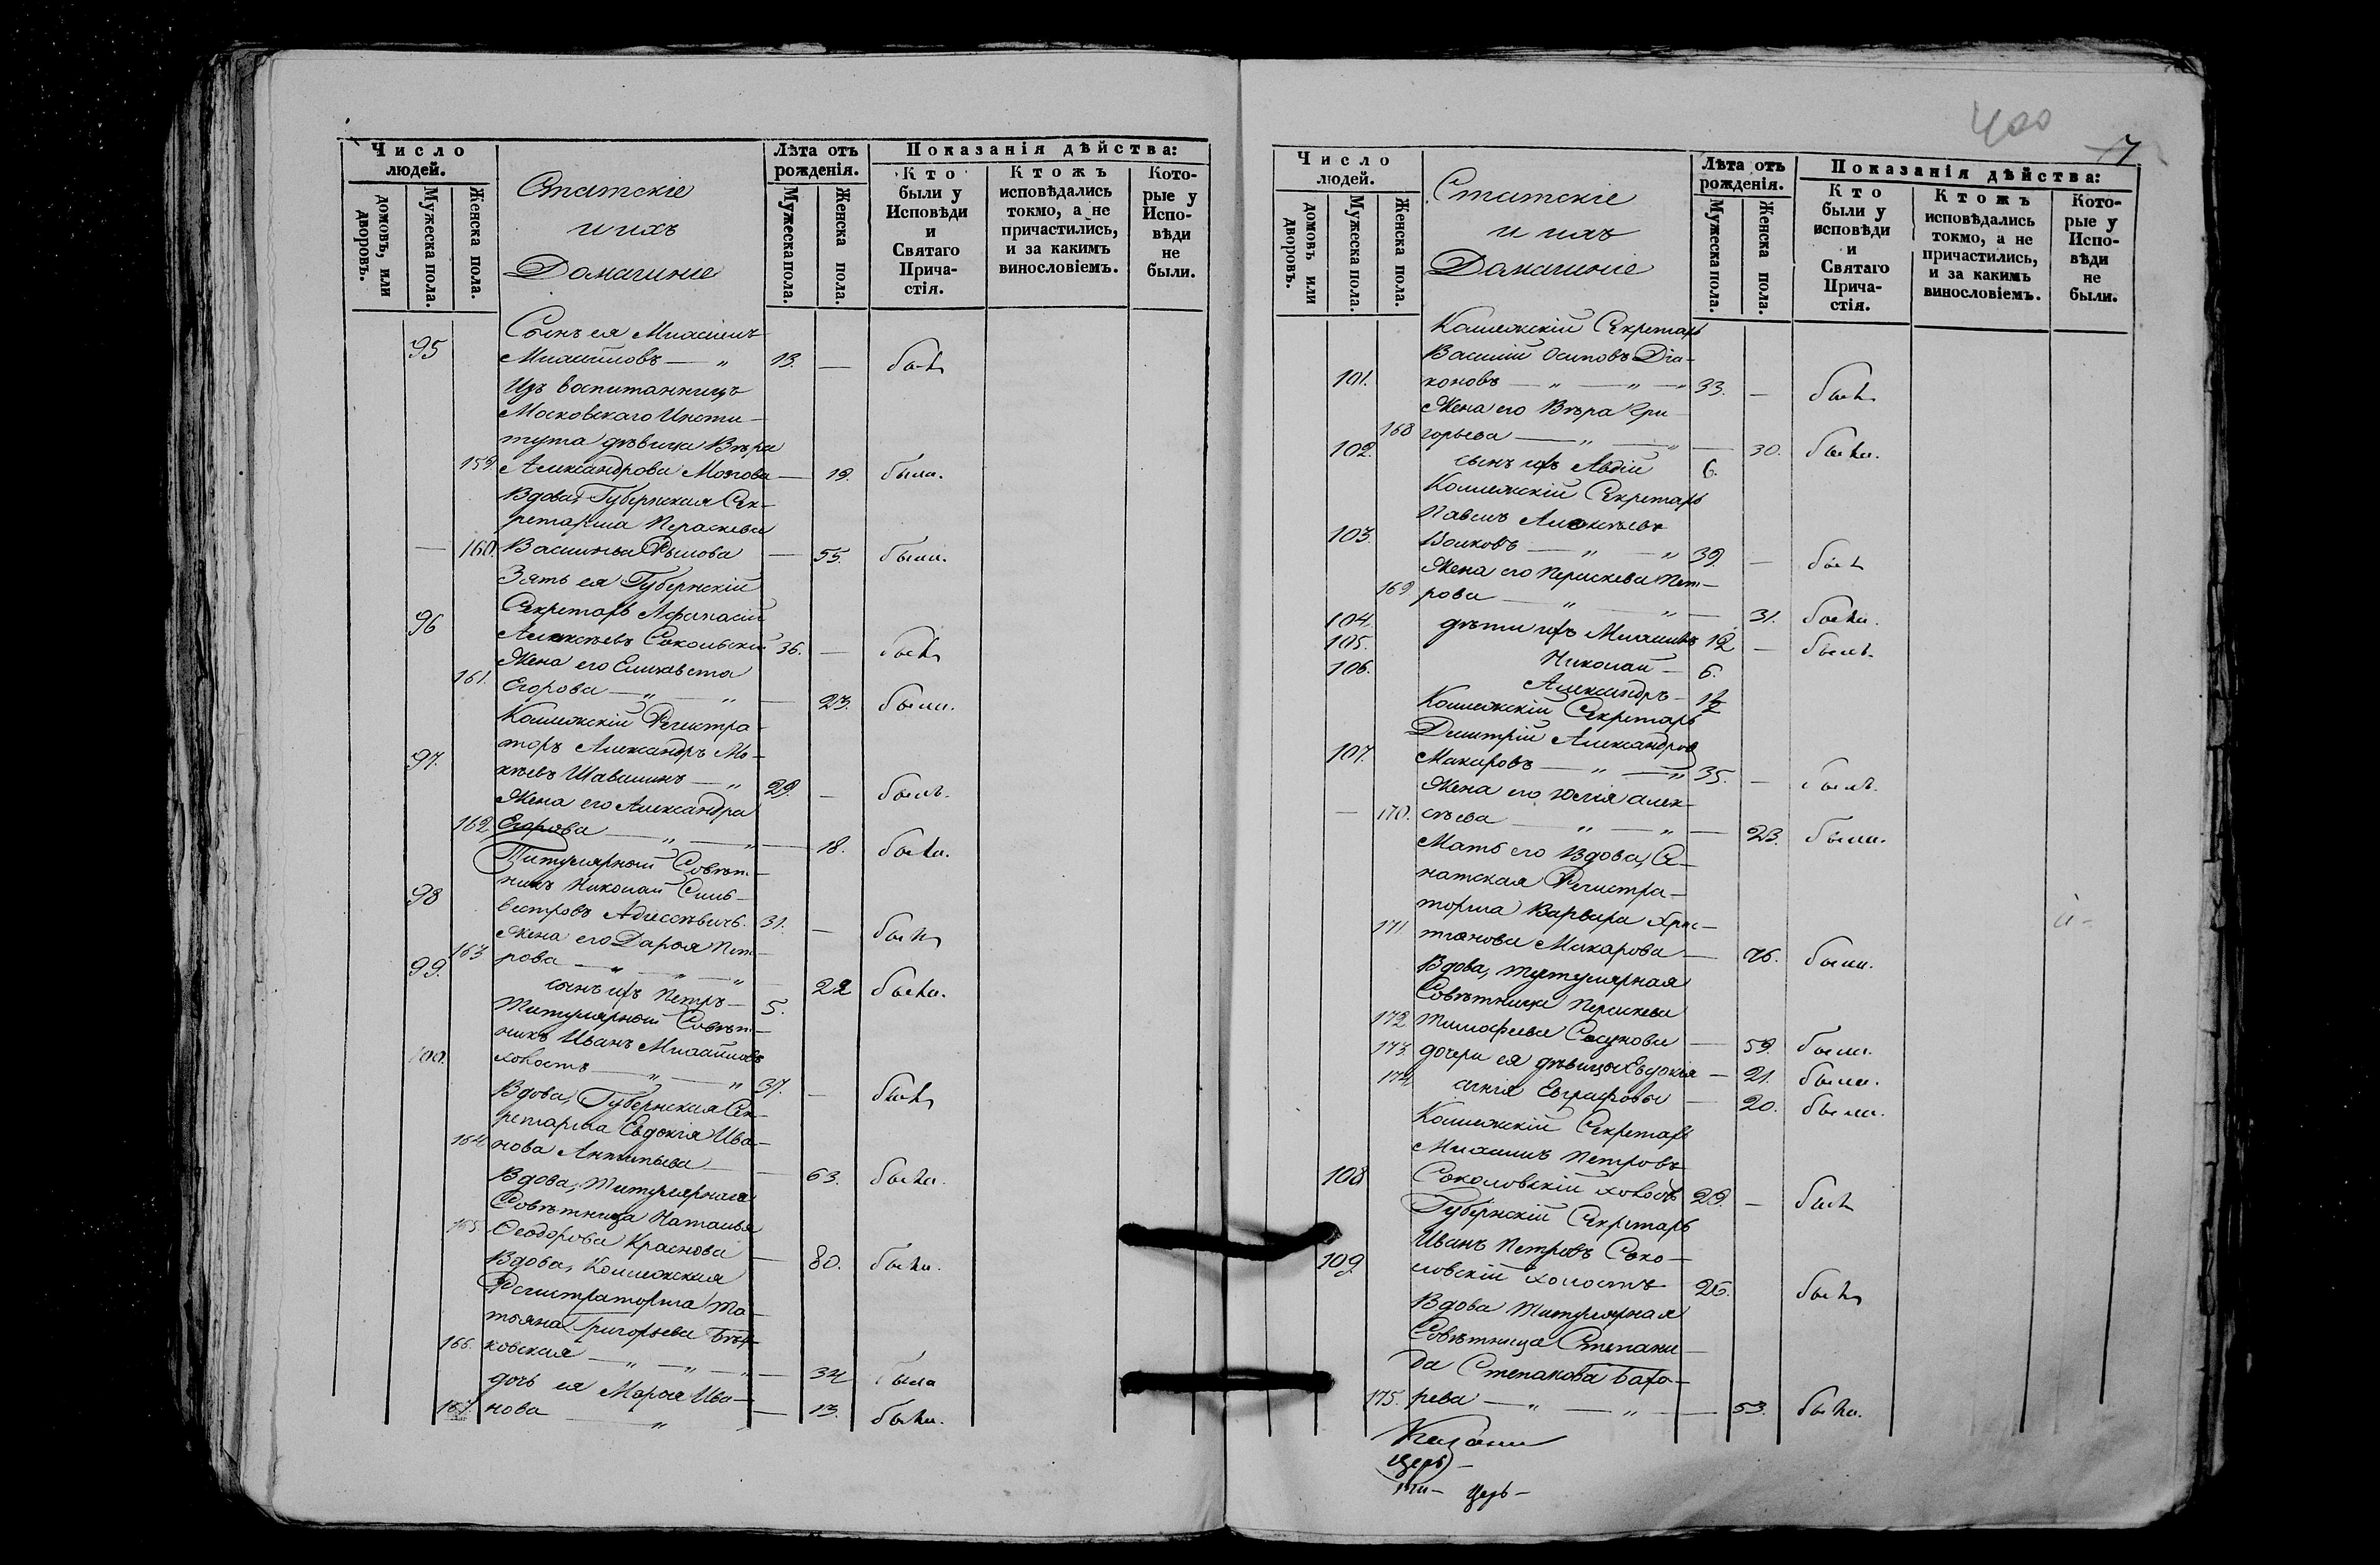 Число людей.
домовъ, или дворовъ.
Мужеска пола.
Женска пола.
Статскіе
и ихъ
Домашніе
Лѣта отъ рожденія.
Мужеска пола.
Женска пола.
Показанія дѣйства:
Кто были у Исповѣди и Святаго Причастія.
Ктожъ исповѣдались токмо, а не причастились, и за какимъ винословіемъ.
Которые у Исповѣди не были.
Сынъ ея Михаилъ
95 Михайловъ — „ 13. — былъ
Изъ воспитанницъ
Московскаго Инсти-
тута дѣвица Вѣра
159. Александрова — 19. была.
Вдова, Губернская Сек-
ретарша Параскева
— 160. Васильева — 55. была.
Зять ея Губернскій
Секретарь Афанасій
96 Алексѣевъ Сокольскій 36. — былъ
Жена его Елисавета
161. Егорова — „ — „ — 23. была.
Коллежскій Регистра-
торъ Александръ Мо-
97. кѣевъ Шавалинъ — „ 29. — былъ.
Жена его Александра
162. Егорова — „ — „ — 18. была.
Титулярный Совѣт-
никъ Николай Силь-
98 вестровъ 31. — былъ
Жена его Дарья Пет-
163 рова — „ — „ — 22 была.
99. сынъ ихъ Петръ — 5.
Титулярный Совѣт-
никъ Иванъ Михайловъ
100. холостъ — „ — „ 37. — былъ
Вдова, Губернская Сек-
ретарша Евдокія Ива-
164 нова Антипьева — 63. была.
Вдова, Титулярная
Совѣтница Наталья
165. Ѳеодорова Краснова — 80. была.
Вдова, Коллежская
Регистраторша Та-
тьяна Григорьева
166. ковская — „ — „ — 34 была
дочь ея Марья Ива-
167. нова — „ — 13. была.
400
7
Число людей.
домовъ или дворовъ.
Мужеска пола.
Женска пола.
Статскіе
и ихъ
Домашніе
Лѣта отъ рожденія.
Мужеска пола.
Женска пола.
Показанія дѣйства:
Кто были у исповѣди и Святаго Причастія.
Ктожъ исповѣдались токмо, а не причастились, и за какимъ винословіемъ.
Которые у Исповѣди не были.
Коллежскій Секретарь
Василій Осиповъ Діа-
101. коновъ — „ — „ — „ 33. — былъ
Жена его Вѣра Гри-
168 горьева — „ — „ — 30. была.
102. сынъ ихъ Авдій 6.
Коллежскій Секретарь
Павелъ Алексѣевъ
103. Волковъ — „ — „ 39. — былъ
Жена его Параскева Пет-
169 рова — „ — „ — 31. была.
104. дѣти ихъ Михаилъ 12 — былъ.
105. Николай — 6.
106. Александръ — 1½
Коллежскій Секретарь
Димитрій Александровъ
107. Макаровъ — „ — „ 35. — былъ.
Жена его Юлія Алек-
— 170. сѣева — „ — „ — 23. была.
Мать его Вдова, Се-
натская Регистра-
торша Варвара Хрис-
171. тіанова Макарова — 76. была.
Вдова, титулярная
Совѣтница Параскева
172 Тимофеева — 59. была.
173. дочери ея дѣвицы Евдокія — 21. была.
174 Евграфовы — 20. была.
Коллежскій Секретарь
Михаилъ Петровъ
108 Соколовскій холостъ 29. — былъ
Губернскій Секретарь
Иванъ Петровъ Соко-
109. ловскій холостъ 26. былъ
Вдова Титулярная
Совѣтница Степани-
да Степанова Баха-
175. рева — „ — „ — 53. была.